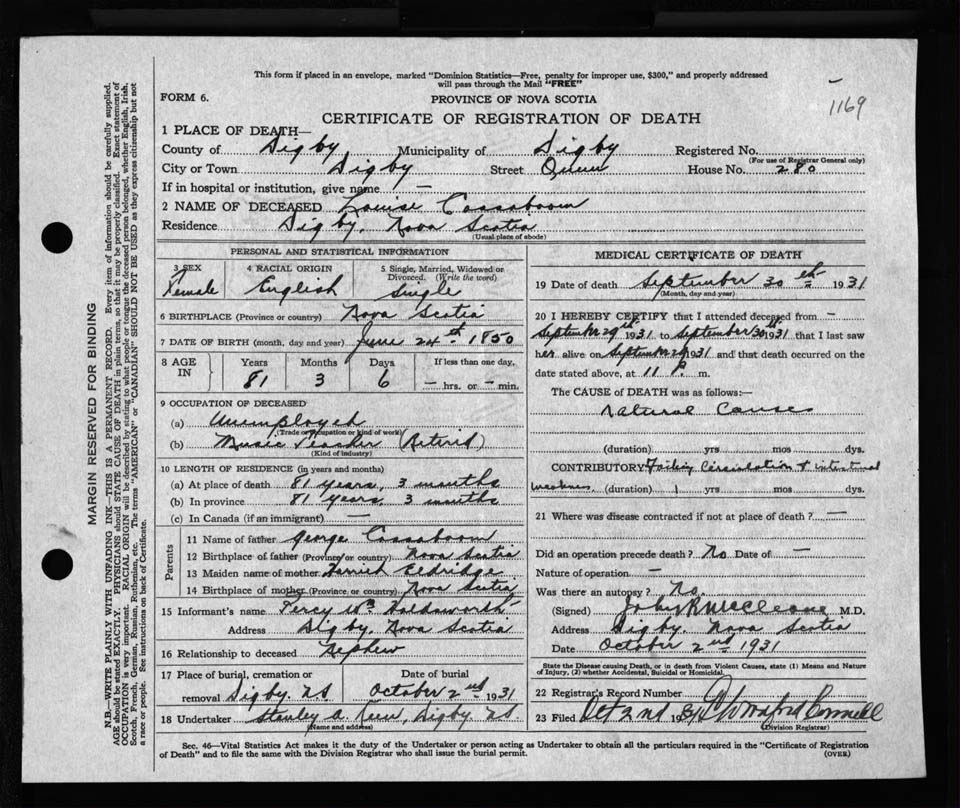 This form if placed in an envelope, marked "Dominion Statistics—Free, penalty for improper use, $300," and properly addressed
will pass through the Mail "FREE"
FORM 6.
PROVINCE OF NOVA SCOTIA
1169
CERTIFICATE OF REGISTRATION OF DEATH
1 PLACE OF DEATH—
County of Digby Municipality of Digby Registered No.
(For use of Registrar General only)
City or Town Digby Street Queen House No. 280
If in hospital or institution, give name —
2 NAME OF DECEASED Louise Cossaboom
Residence Digby, Nova Scotia
(Usual place of abode)
PERSONAL AND STATISTICAL INFORMATION
3 SEX
Female
4 RACIAL ORIGIN
English
5 Single, Married, Widowed or
Divorced. (Write the word)
Single
6 BIRTHPLACE (Province or country) Nova Scotia
7 DATE OF BIRTH (month, day and year) June 24th 1850
8 AGE
IN
Years
81
Months
3
Days
6
If less than one day,
— hrs. or — min.
9 OCCUPATION OF DECEASED
(a) Unemployed
(Trade or occupation or kind of work)
(b) Music Teacher (Retired)
(Kind of industry)
10 LENGTH OF RESIDENCE (in years and months)
(a) At place of death 81 years, 3 months
(b) In province 81 years, 3 months
(c) In Canada (if an immigrant) —
Parents
11 Name of father George Cossaboom
12 Birthplace of father (Province or country) Nova Scotia
13 Maiden name of mother Eldridge
14 Birthplace of mother (Province or country) Nova Scotia
15 Informant's name Percy Wm Holdsworth
Address Digby, Nova Scotia
16 Relationship to deceased Nephew
17 Place of burial, cremation or
removal Digby NS
Date of burial
October 2nd 1931
18 Undertaker Stanley A. Digby NS
(Name and address)
MEDICAL CERTIFICATE OF DEATH
19 Date of death September 30th 1931
(Month, day and year)
20 I HEREBY CERTIFY that I attended deceased from —
September 29th 1931 to September 30th 1931 that I last saw
her alive on September 29 1931 and that death occurred on the
date stated above, at 11 P. m.
The CAUSE OF DEATH was as follows:—
Natural Causes
(duration) yrs mos dys.
CONTRIBUTORY Failing Circulation & intestinal
weakness. (duration) 1 yrs mos dys.
21 Where was disease contracted if not at place of death? —
Did an operation precede death? No Date of —
Nature of operation —
Was there an autopsy? No.
(Signed) John R McCleave M.D.
Address Digby Nova Scotia
Date October 2nd 1931
State the Disease causing Death, or in death from Violent Causes, state (1) Means and Nature
of Injury, and (2) whether Accidental, Suicidal or Homicidal.
22 Registrar's Record Number
23 Filed Oct 2nd 1931
(Division Registrar)
Sec. 46—Vital Statistics Act makes it the duty of the Undertaker or person acting as Undertaker to obtain all the particulars required in the "Certificate of Registration
of Death" and to file the same with the Division Registrar who shall issue the burial permit.
(OVER)
MARGIN RESERVED FOR BINDING
N.B.—WRITE PLAINLY WITH UNFADING INK—THIS IS A PERMANENT RECORD. Every item of information should be carefully supplied.
AGE should be stated EXACTLY. PHYSICIANS should STATE CAUSE OF DEATH in plain terms, so that it may be properly classified. Exact statement of
OCCUPATION is very important. RACIAL ORIGIN will be described by stating to what people or tongue the deceased person belonged, whether English, Irish,
Scotch, French, German, Russian, Ruthenian, etc. The terms "AMERICAN" or "CANADIAN" SHOULD NOT BE USED as they express citizenship but not
a race or people. See instructions on back of Certificate.